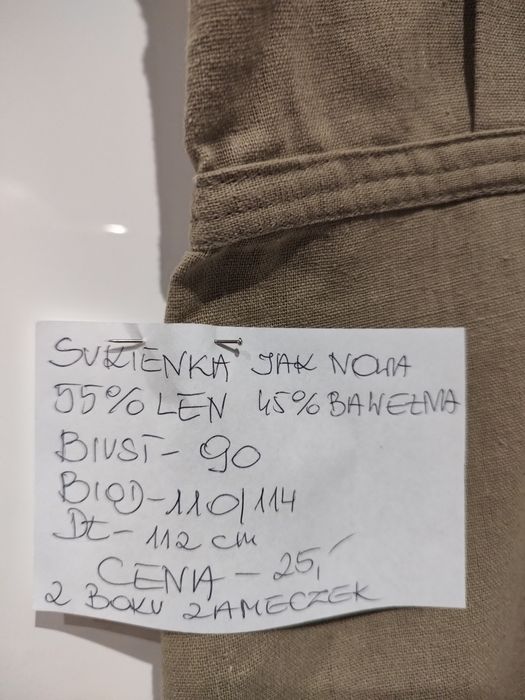 SUKIENKA JAK NOWA
55% LEN 45% BAWEŁNA
BIUST - 90
BIOD - 110/114
DŁ - 112 cm
CENA - 25,-
Z BOKU ZAMECZEK